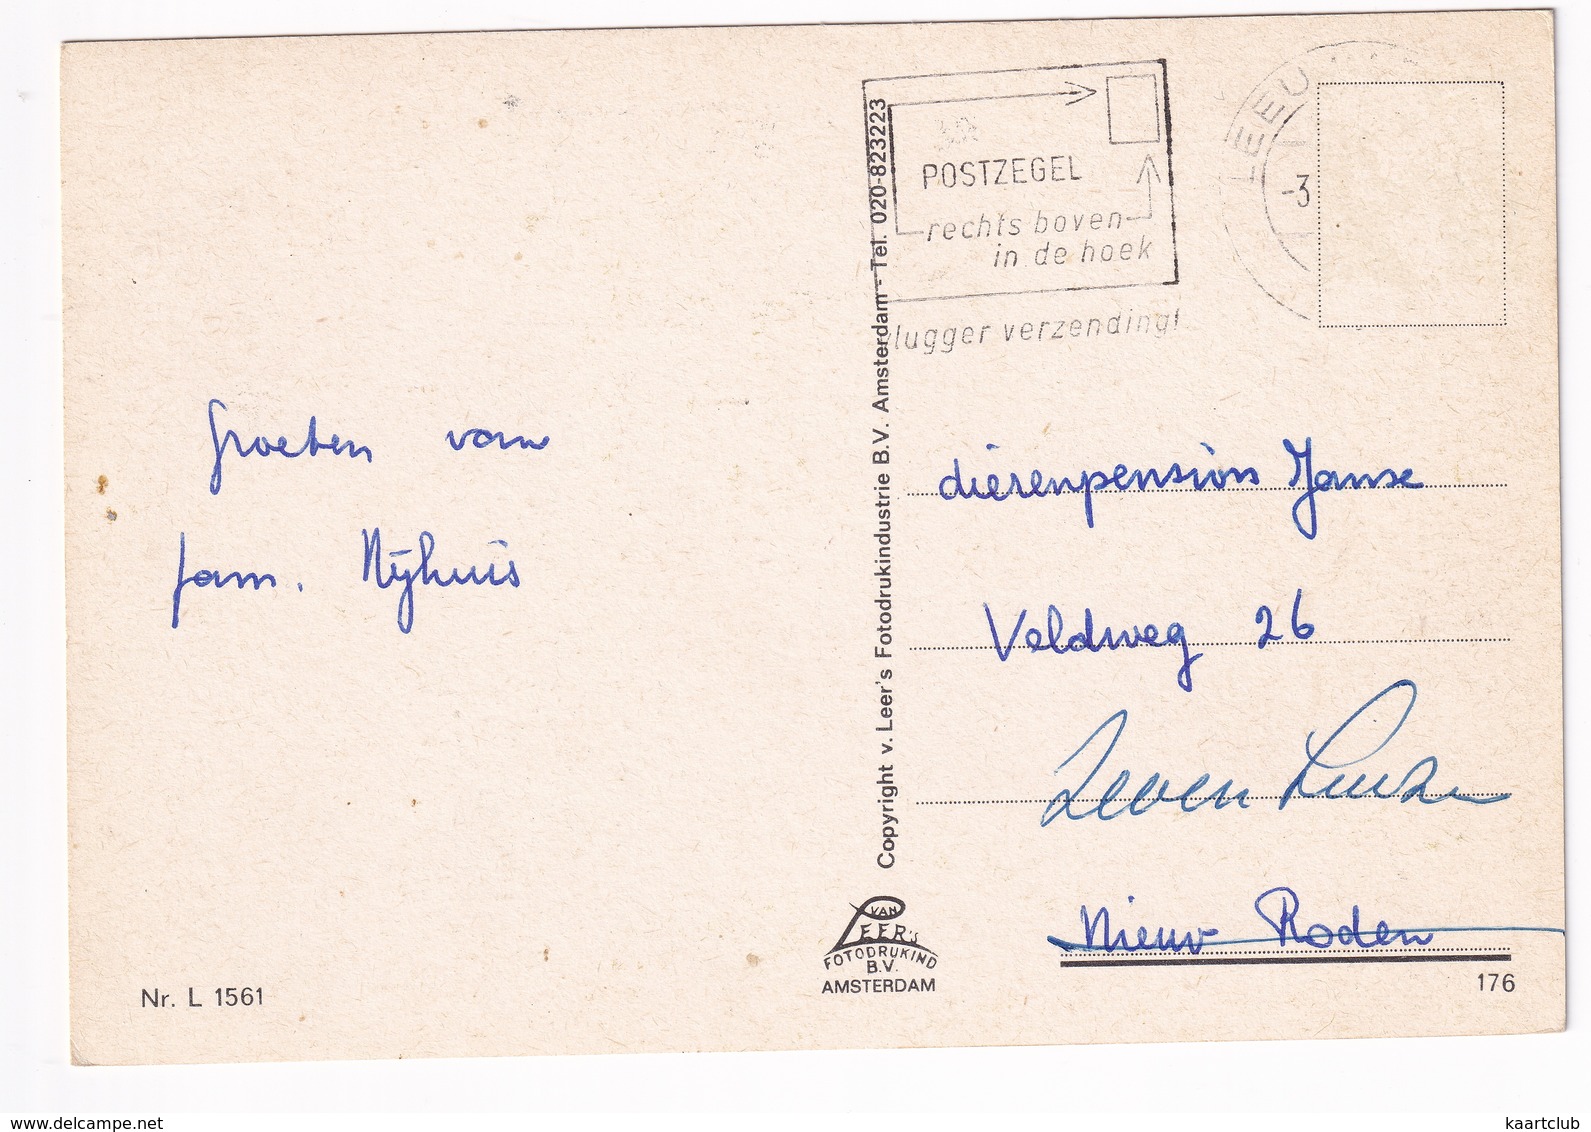 Groeten van
fam. Nijhuis
Nr. L 1561
Copyright v. Leer's Fotodrukindustrie B.V. Amsterdam - Tel. 020-823223
VAN
LEER'S
FOTODRUKIND
B.V.
AMSTERDAM
POSTZEGEL
rechts boven
in de hoek
vlugger verzending!
LEEU
-3
dierenpension Janse
Veldweg 26
Zevenhuizen
Nieuw Roden
176
www.delcampe.net
kaartclub